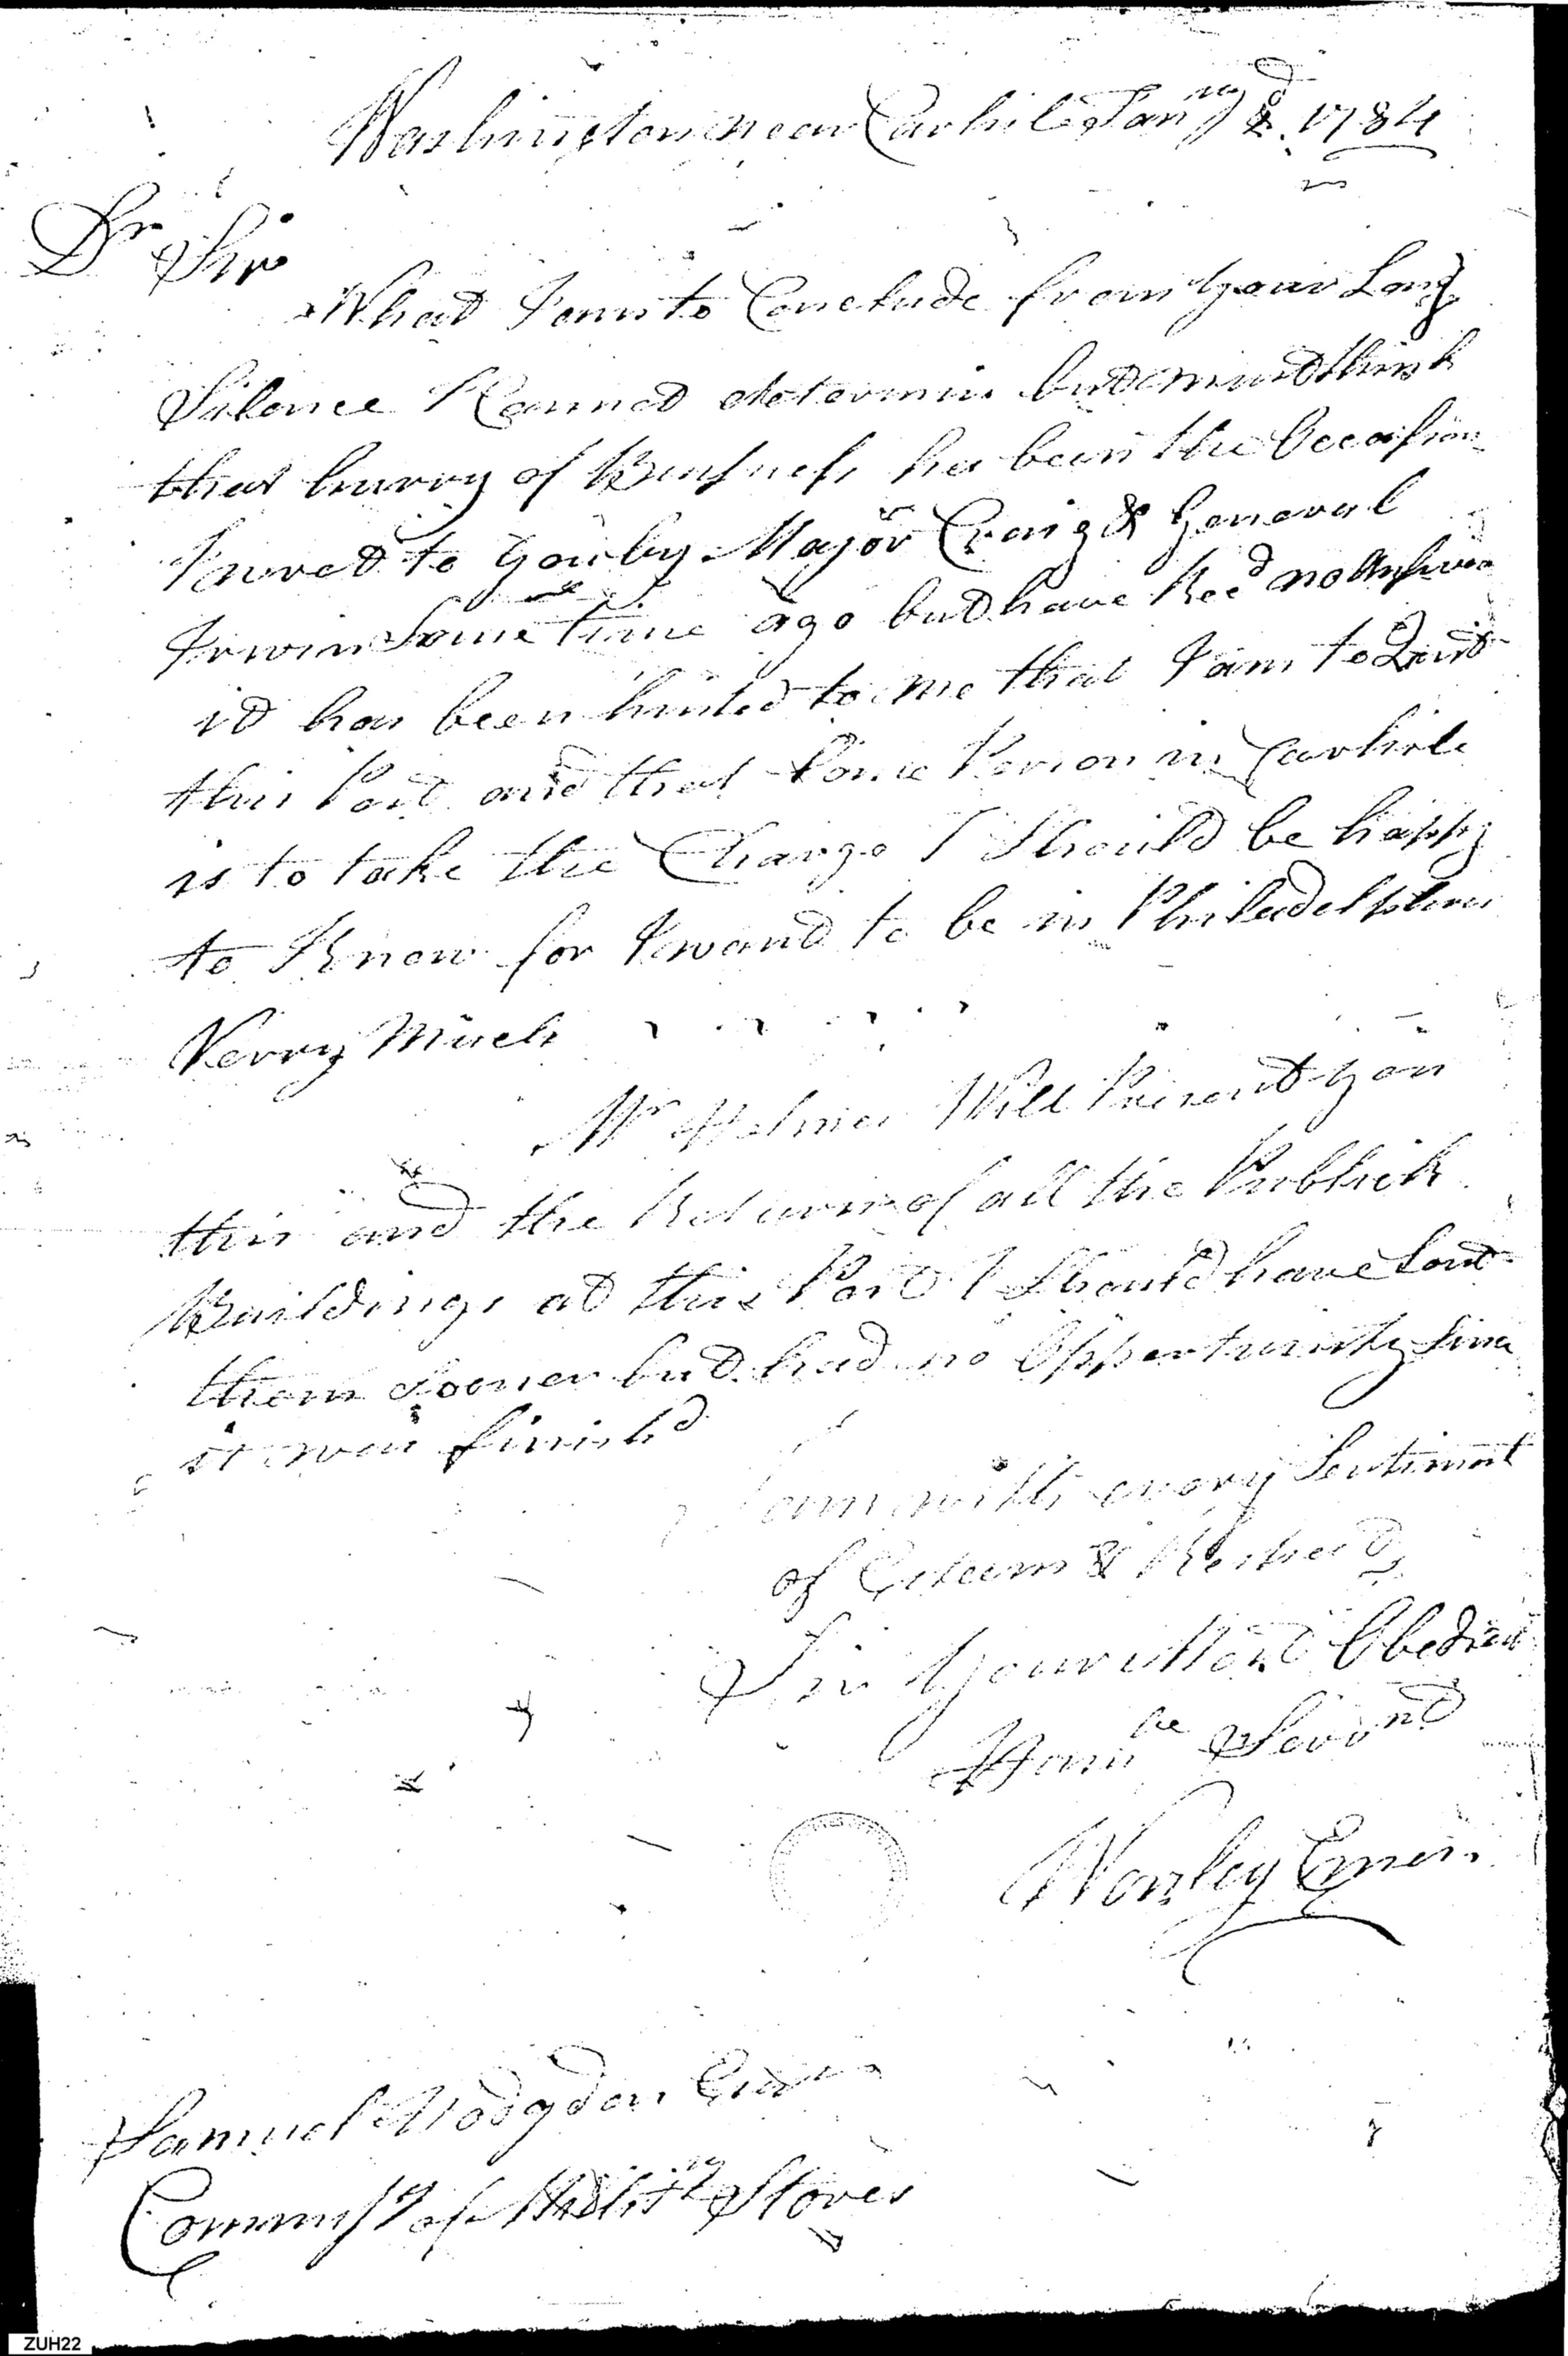 Washington near Carlisle Janry 2d 1784
Dr Sir
What I am to Conclude from your Long
Silence I Cannot determin but must think
that hurry of Business has been the Occasion
I wrot to you by Major Craig & General
Irwin Some time ago but have Recd no Answer
it has been hinted to me that I am to Quit
this Post and that Some Person in Carlisle
is to take the Charge I Should be happy
to Know for I want to be in Philadelphia
Verry Much
Mr Holmes Will Present you
this and the Return of all the Publick
Buildings at this Post I Should have Sent
them Sooner but had no Oppertunity Since
it was finishd
I am with every Sentiment
of Esteem & Respect
Sir your Most Obedient
Humbe Servnt
Worsley Emes
Samuel Hodgdon Esqr
Commissy of Mility Stores
ZUH22